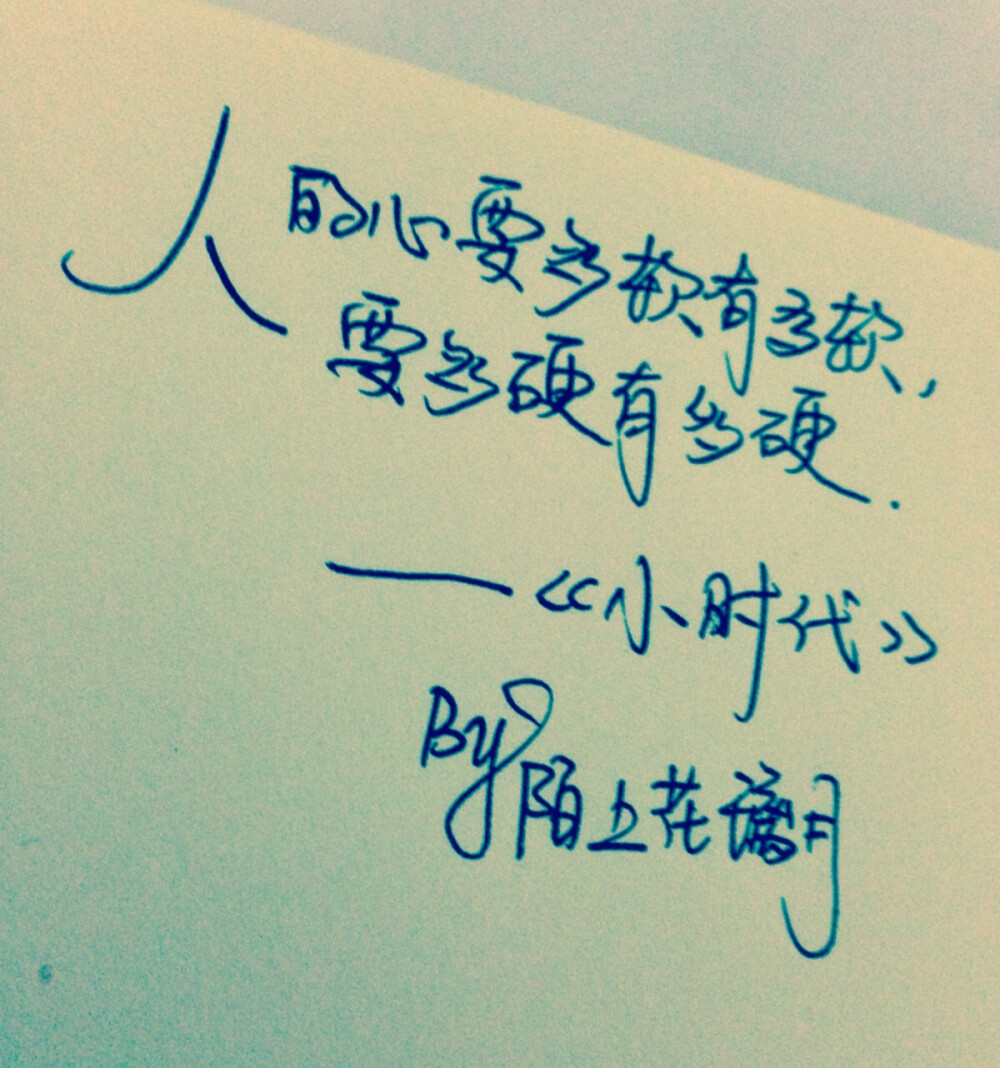 人的心要多软有多软,
要多硬有多硬.
——《小时代》
By 陌上花 月